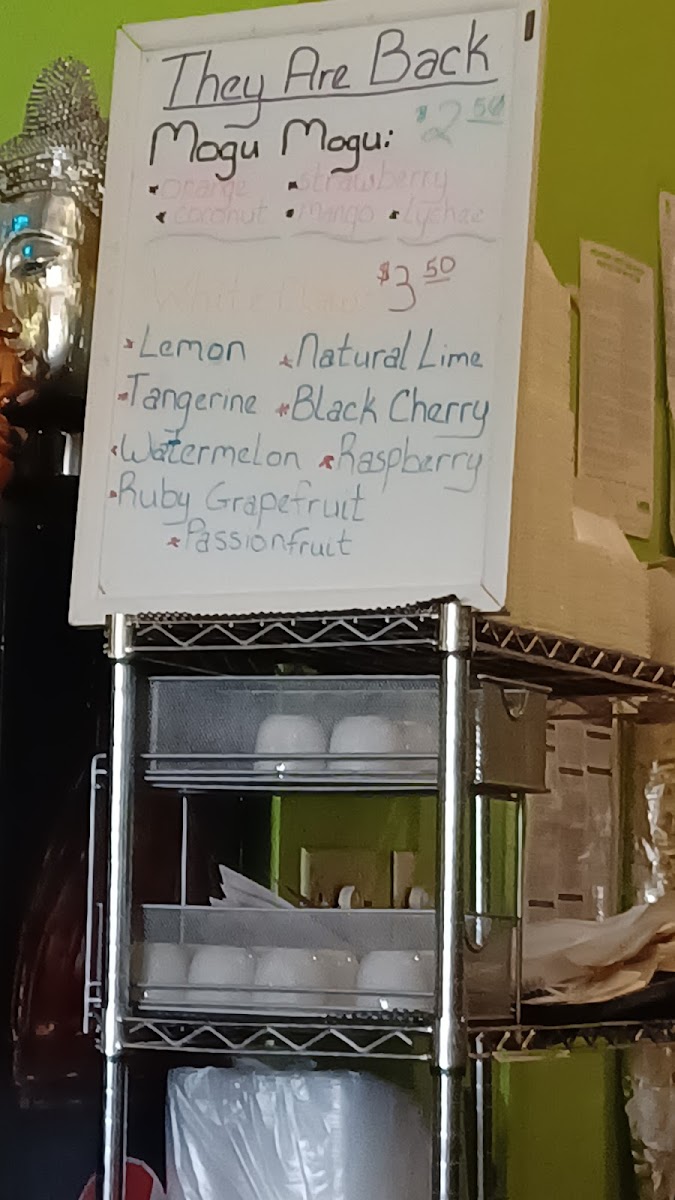 They Are Back
Mogu Mogu: $2 50
• orange • strawberry
• coconut • mango • Lychee
White Claw $3 50
* Lemon * Natural Lime
* Tangerine * Black Cherry
* Watermelon * Raspberry
* Ruby Grapefruit
* Passionfruit